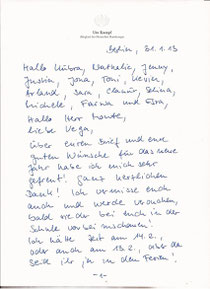 Ute Kumpf
Mitglied des Deutschen Bundestages
Berlin, 21.1.13
Hallo Kübra, Nathalie, Jenny,
Justin, Jona, Toni, Kevin,
Sara,
Michele, Fatma und Esra,
Hallo Herr
liebe Vega,
über euren Brief und eure
guten Wünsche für das neue
Jahr habe ich mich sehr
gefreut! Ganz herzlichen
Dank! Ich vermisse euch
auch und werde versuchen,
bald wieder bei euch in der
Schule vorbeizuschauen!
Ich hätte Zeit am 14.2.,
oder auch am 13.2., aber da
seid ihr in den Ferien!
-1-